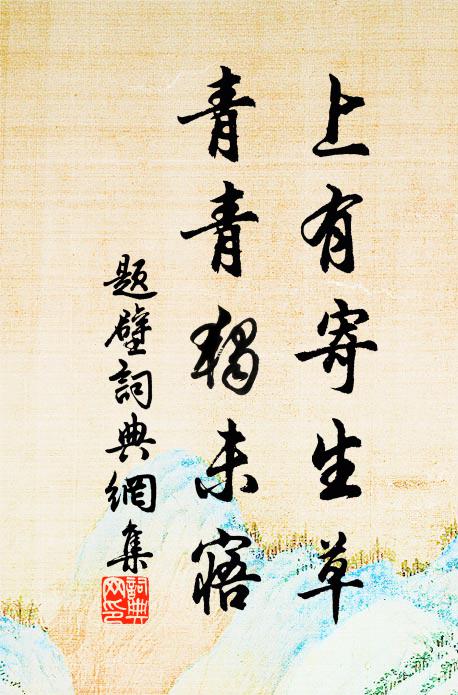 上有寄生草
青青獨未寤
題壁詞典網集
詞典